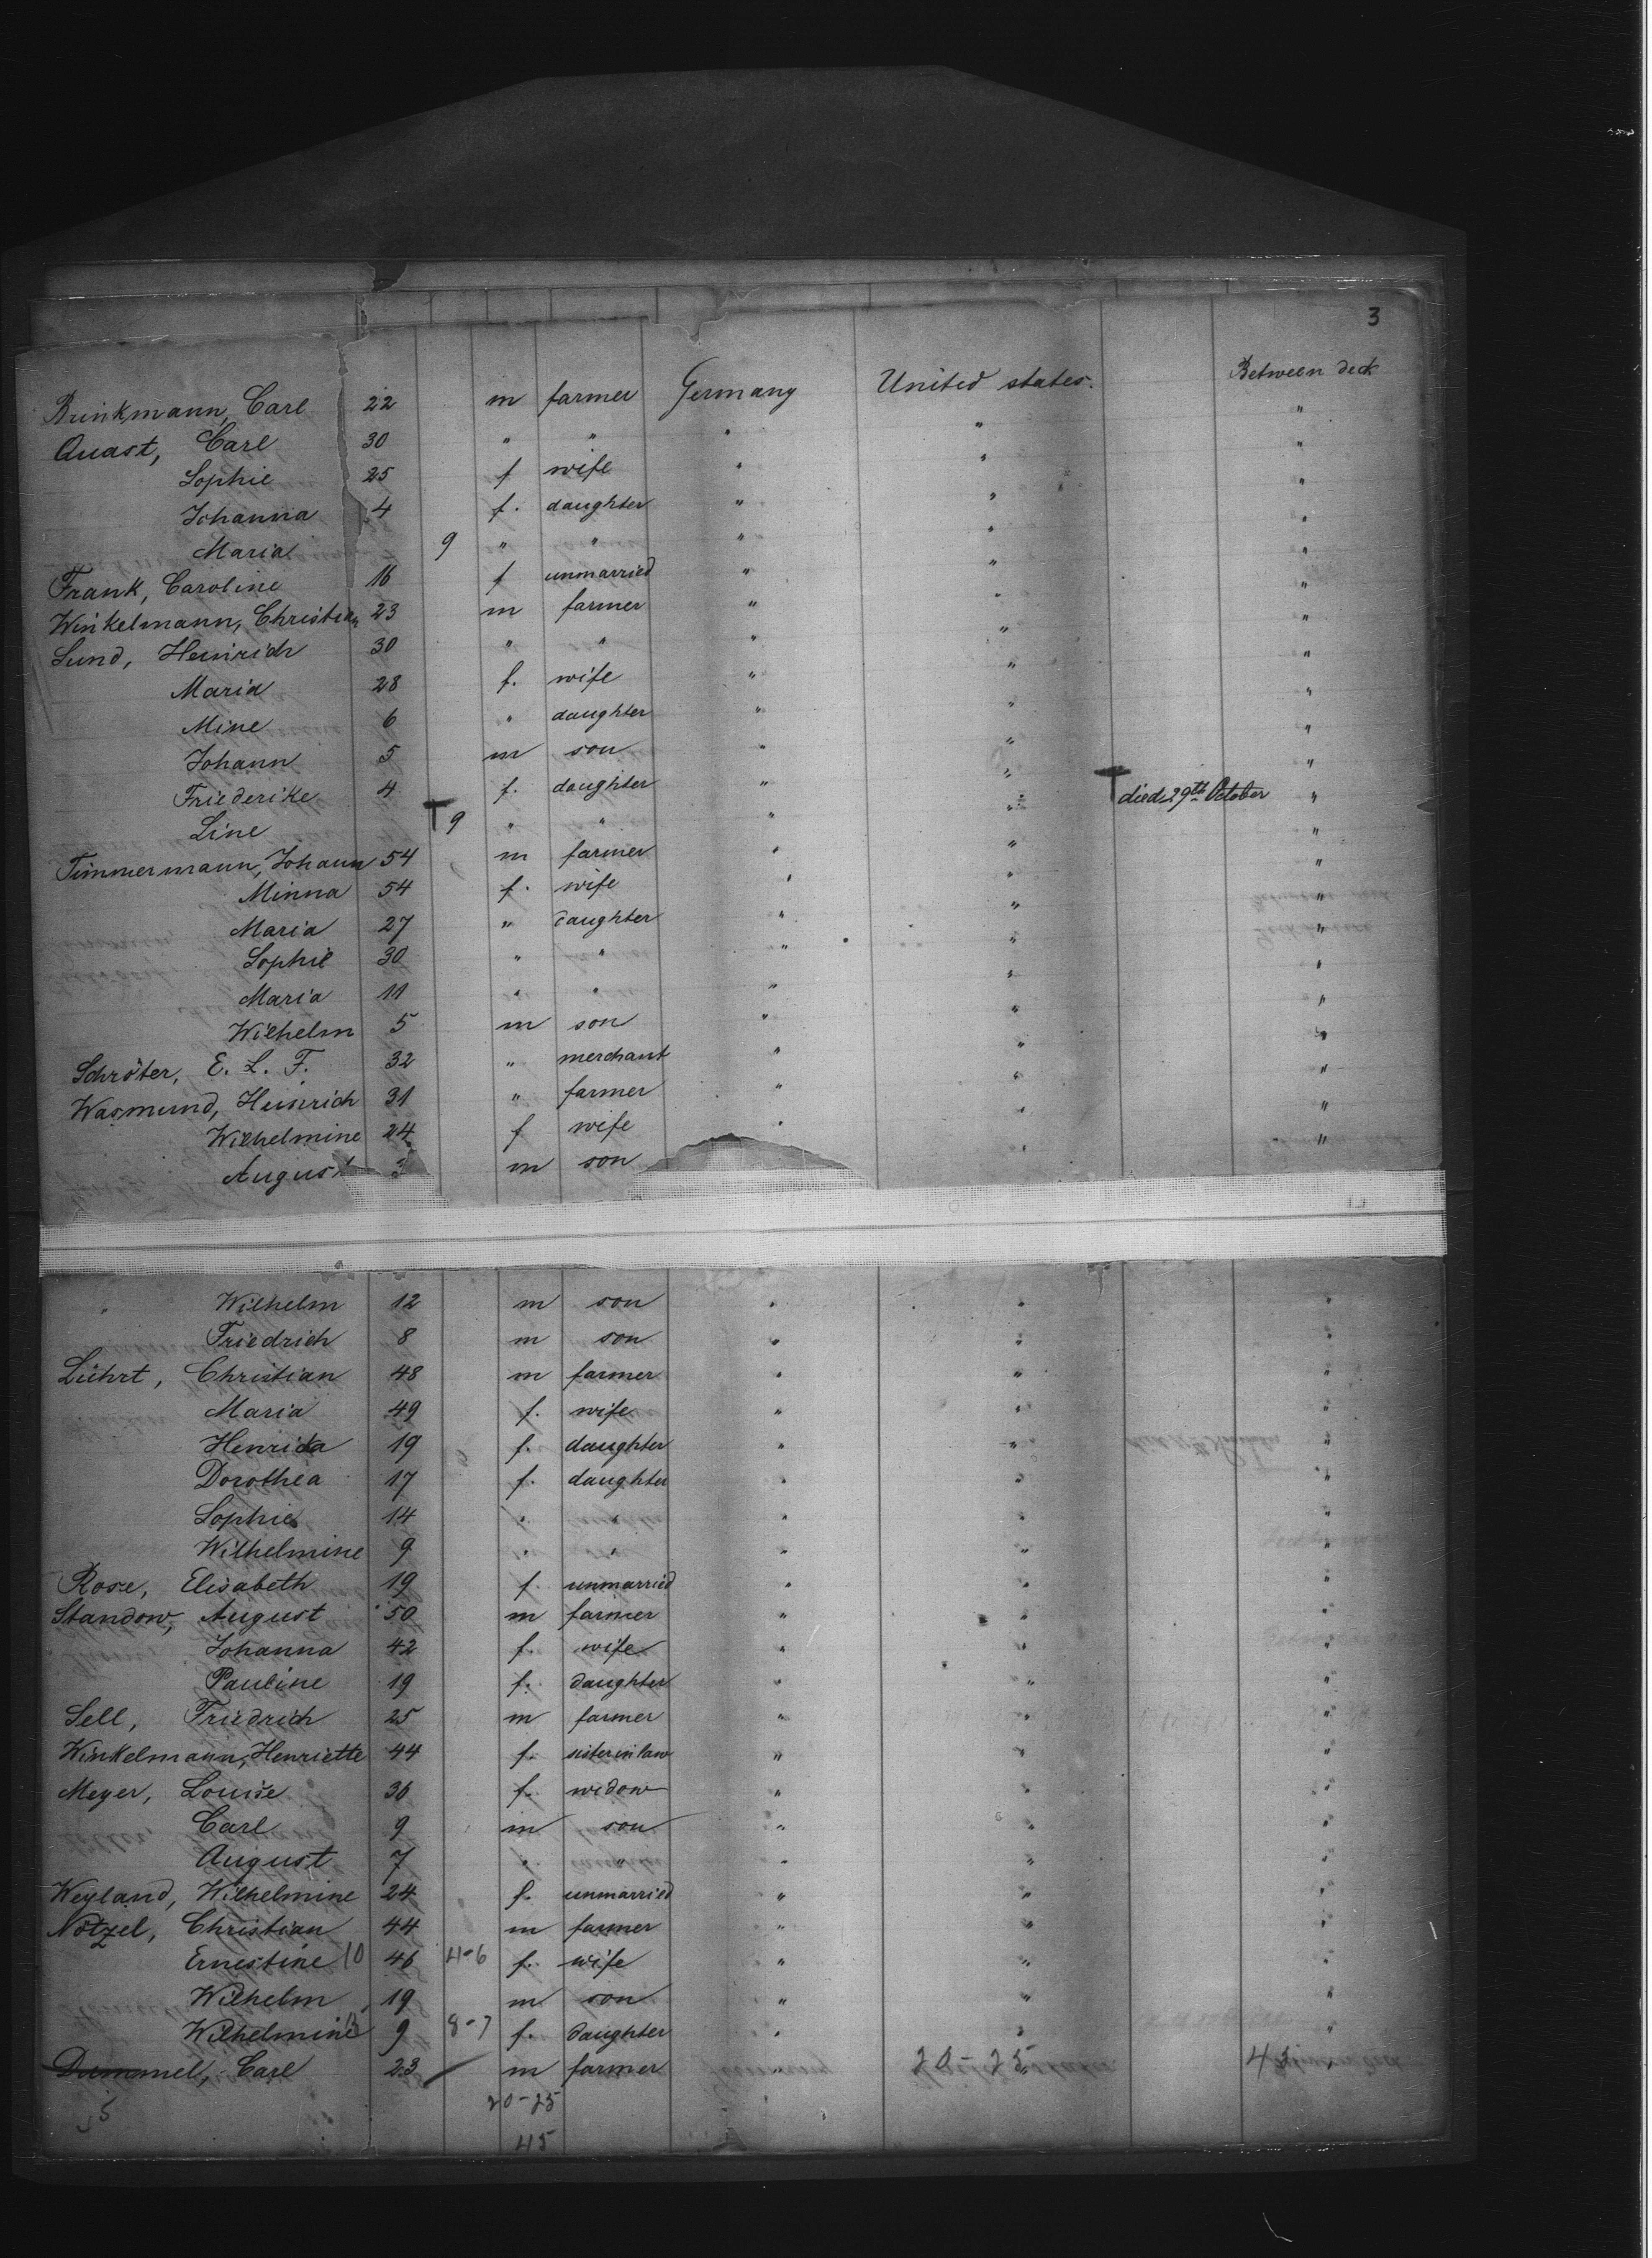 3
Between deck
Brinkmann, Carl 22 m farmer Germany United states. "
Quast, Carl 30 " " " " "
Sophie 25 f wife " " "
Johanna 4 f. daughter " " "
Maria 9 " " " " "
Frank, Caroline 16 f unmarried " " "
Winkelmann, Christian 23 m farmer " " "
Lund, Heinrich 30 " " " " "
Maria 28 f. wife " " "
Mine 6 " daughter " " "
Johann 5 m son " " "
Friederike 4 f. daughter " " "
Line † 9 " " " " † died 29th October "
Timmermann, Johann 54 m farmer " " "
Minna 54 f. wife " " "
Maria 27 " daughter " " "
Sophie 30 " " " " "
Maria 11 " " " " "
Wilhelm 5 m son " " "
Schröter, E. L. F. 32 " merchant " " "
Wasmund, Heinrich 31 " farmer " " "
Wilhelmine 24 f wife " " "
August 3 m son " "
Wilhelm 12 m son " " "
Friedrich 8 m son " " "
Lührt, Christian 48 m farmer " " "
Maria 49 f. wife " " "
Henrika 19 f. daughter " " "
Dorothea 17 f. daughter " " "
Sophie 14 " " " " "
Wilhelmine 9 " " " " "
Rose, Elisabeth 19 f. unmarried " " "
Standow, August 50 m farmer " " "
Johanna 42 f. wife " " "
Pauline 19 f. daughter " " "
Sell, Friedrich 25 m farmer " " "
Winkelmann, Henriette 44 f. sister in law " " "
Meyer, Louise 36 f. widow " " "
Carl 9 m son " " "
August 7 " " " " "
Weyland, Wilhelmine 24 f. unmarried " " "
Nötzel, Christian 44 m farmer " " "
Ernestine 10 46 4-6 f. wife " " "
Wilhelm 19 m son " " "
Wilhelmine 13 9 8-7 f. daughter " " "
Dammel, Carl 23 m farmer " 20-25 45
20-25
5
45